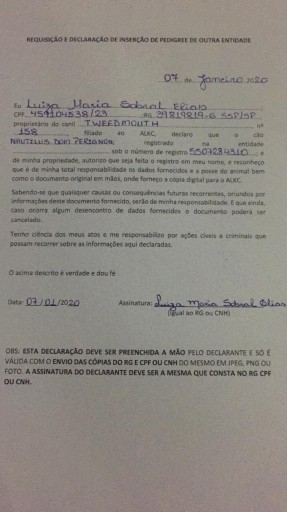 REQUISIÇÃO E DECLARAÇÃO DE INSERÇÃO DE PEDIGREE DE OUTRA ENTIDADE
07 de Janeiro 2020
Eu Luiza Maria Sobral Elias
CPF 459104538/29 RG 39819819-6 SSP/SP
proprietário do canil TWEEDMOUTH nº
158 filiado ao ALKC, declaro que o cão
NAUTILUS DOM PERIGNON, registrado na entidade
sob o número de registro 5507284310, e
de minha propriedade, autorizo que seja feito o registro em meu nome, e reconheço
que é de minha total responsabilidade os dados fornecidos e a posse do animal bem
como o documento original em mãos, onde forneço a cópia digital para o ALKC.
Sabendo-se que qualquer causas ou consequências futuras recorrentes, oriundos por
informações desse documento fornecido, serão da minha responsabilidade. E que ainda,
caso ocorra algum desencontro de dados fornecidos o documento poderá ser
cancelado.
Tenho ciência dos meus atos e me responsabilizo por ações cíveis e criminais que
possam recorrer sobre as informações aqui declaradas.
O acima descrito é verdade e dou fé
Data: 07/01/2020 Assinatura: Luiza Maria Sobral Elias
(igual ao RG ou CNH)
OBS: ESTA DECLARAÇÃO DEVE SER PREENCHIDA A MÃO PELO DECLARANTE E SÓ É
VÁLIDA COM O ENVIO DAS CÓPIAS DO RG E CPF OU CNH DO MESMO EM JPEG, PNG OU
FOTO. A ASSINATURA DO DECLARANTE DEVE SER A MESMA QUE CONSTA NO RG CPF
OU CNH.